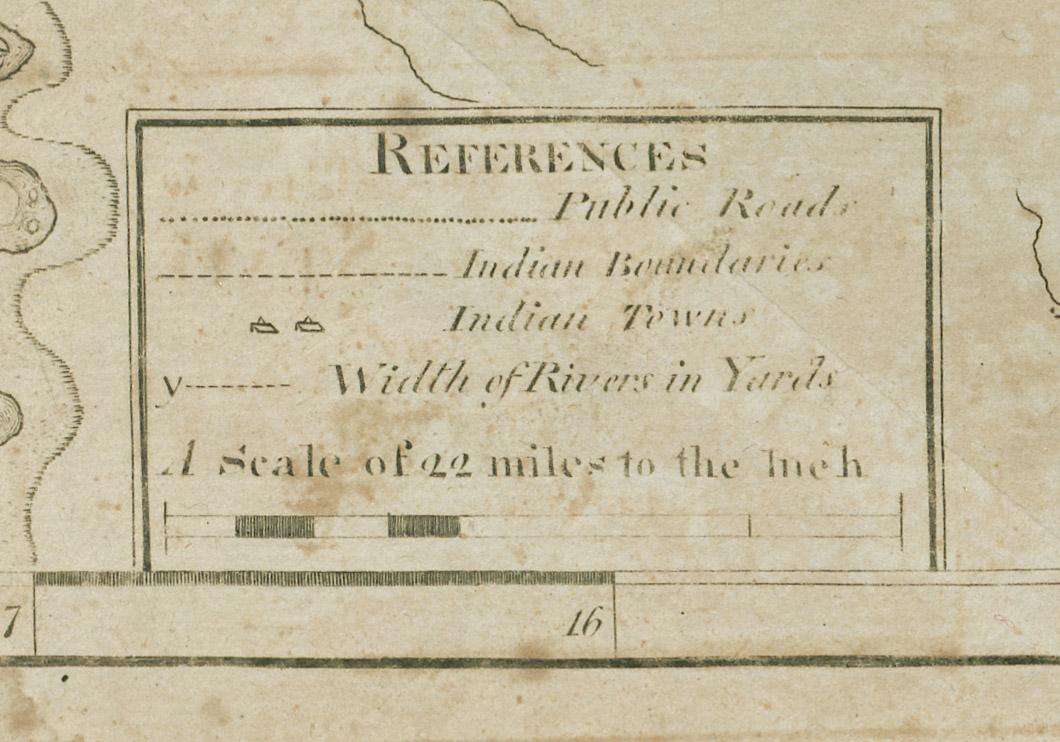 REFERENCES
Public Roads
Indian Boundaries
Indian Towns
y Width of Rivers in Yards
A Scale of 22 miles to the Inch
7 16